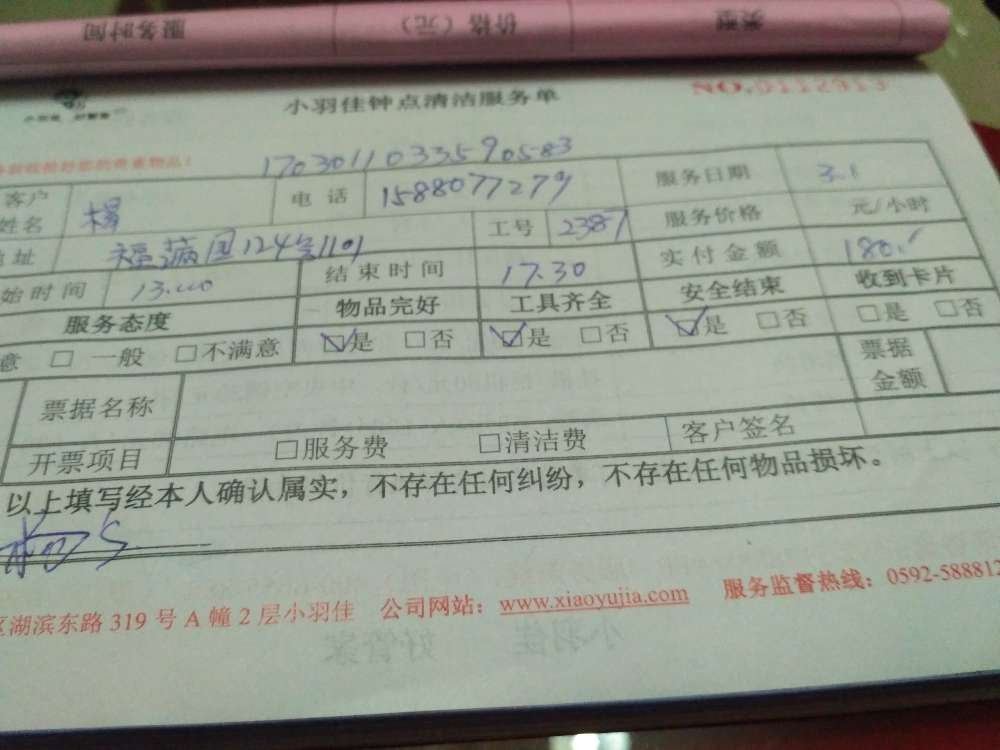 服务时间 价格（元） 类型
小羽佳钟点清洁服务单
1703011033590583
客户姓名 电话 1588077279 服务日期 3.1
地址 124号1101 工号 2387 服务价格 元/小时
始时间 结束时间 17.30 实付金额 180.
服务态度 物品完好 工具齐全 安全结束 收到卡片
意 □ 一般 □不满意 ☑是 □否 ☑是 □否 ☑是 □否 □是 □否
票据名称 票据金额
开票项目 □服务费 □清洁费 客户签名
以上填写经本人确认属实，不存在任何纠纷，不存在任何物品损坏。
区湖滨东路 319 号 A 幢 2 层小羽佳 公司网站：www.xiaoyujia.com 服务监督热线：0592-588812
小羽佳 好管家